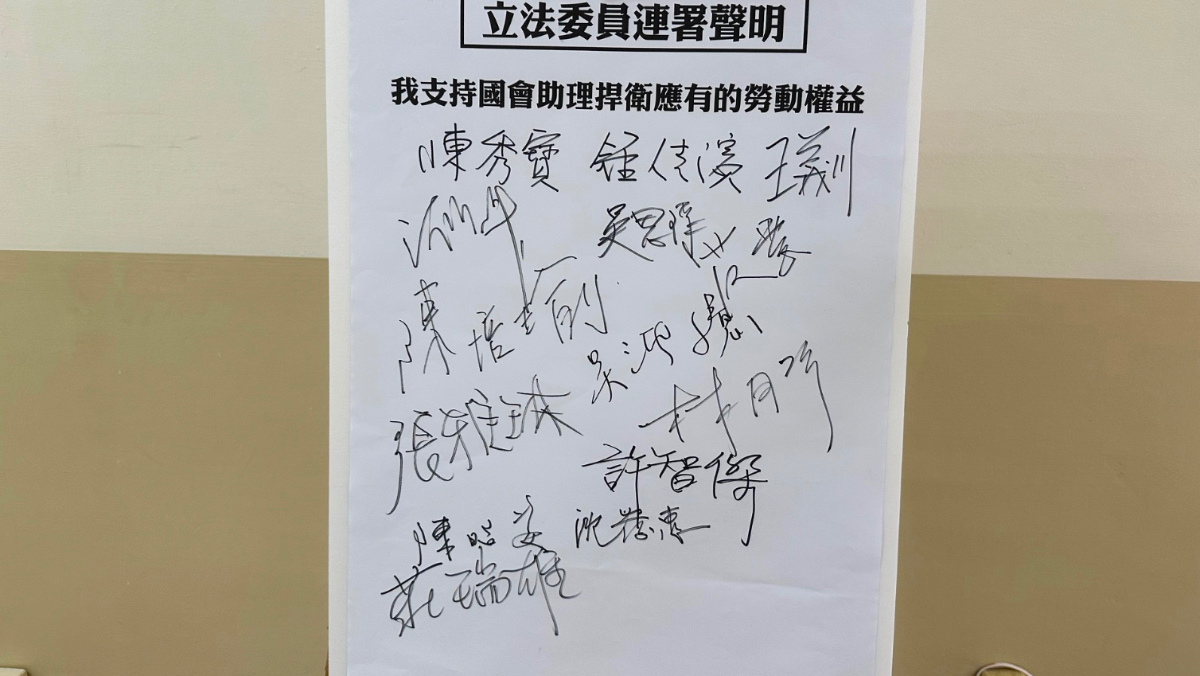 立法委員連署聲明
我支持國會助理捍衛應有的勞動權益
陳秀寶 鍾佳濱 王義川
吳思瑤
陳培瑜
張雅琳 林月琴
許智傑
陳昭姿 沈發惠
莊瑞雄